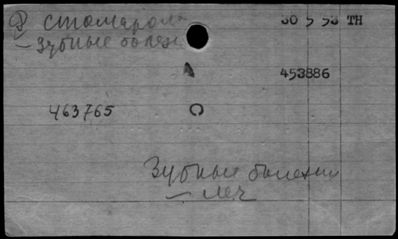 Стомарол 30 5 53 TH
— Зубные болез
A 453886
463765 C
Зубные болезни
— леч